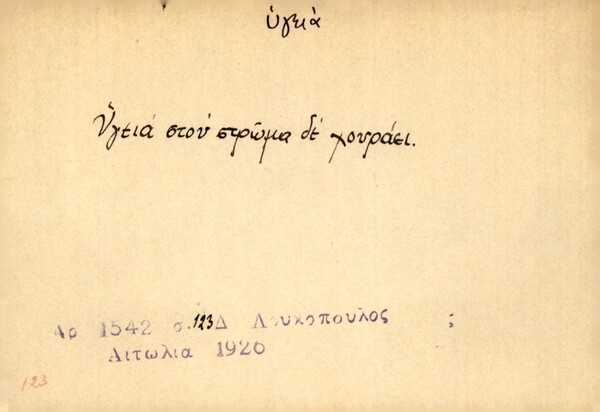 ὑγειὰ
Ὑγειά στού στρῶμα δέ χουράει.
Αρ 1542 σ. 123 Δ Λουκοπουλος ;
Αιτωλια 1926
123